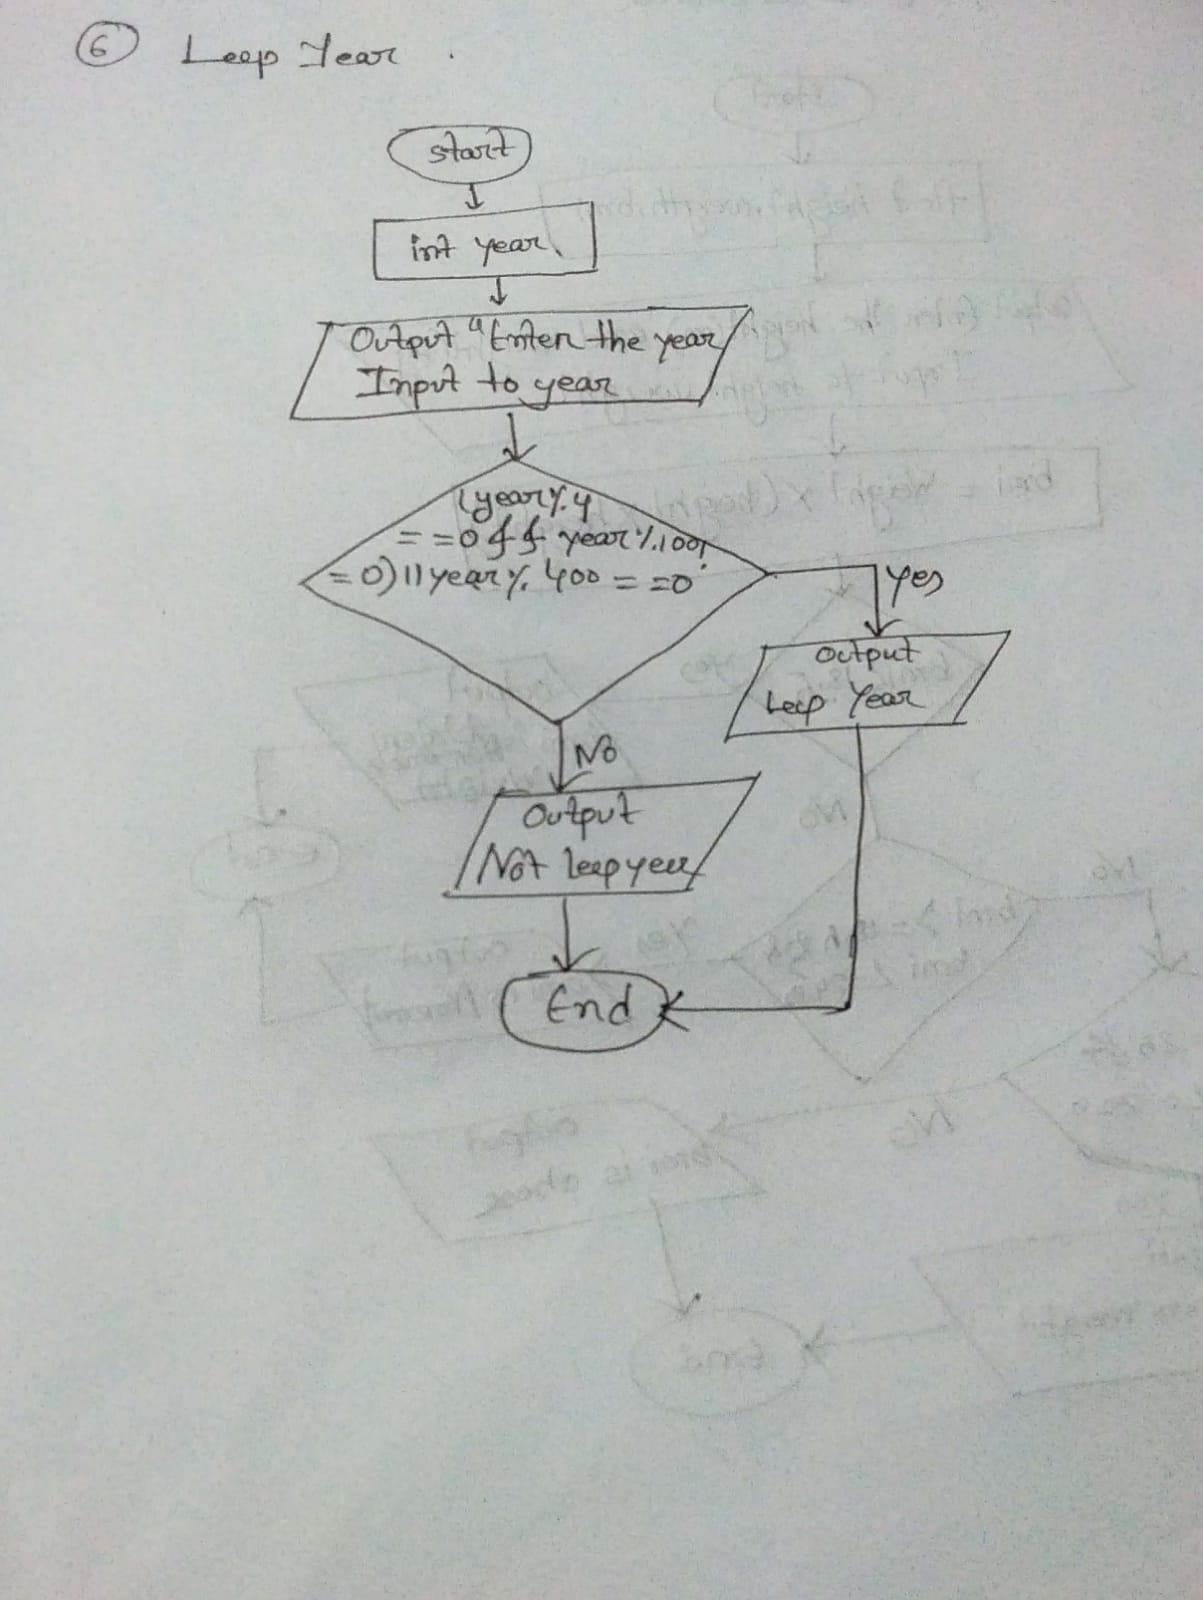 6 Leep Year.
start
int year
Output "Enter the year
Input to year
(year%4
==0 && year%100!
=0)||year%400==0
Yes
Output
Leep Year
No
Output
Not leep year
End